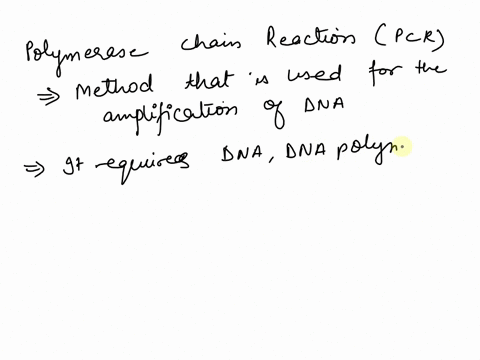 Polymerase chain Reaction (PCR)
⇒ Method that is used for the
amplification of DNA
⇒ It requires DNA, DNA polym